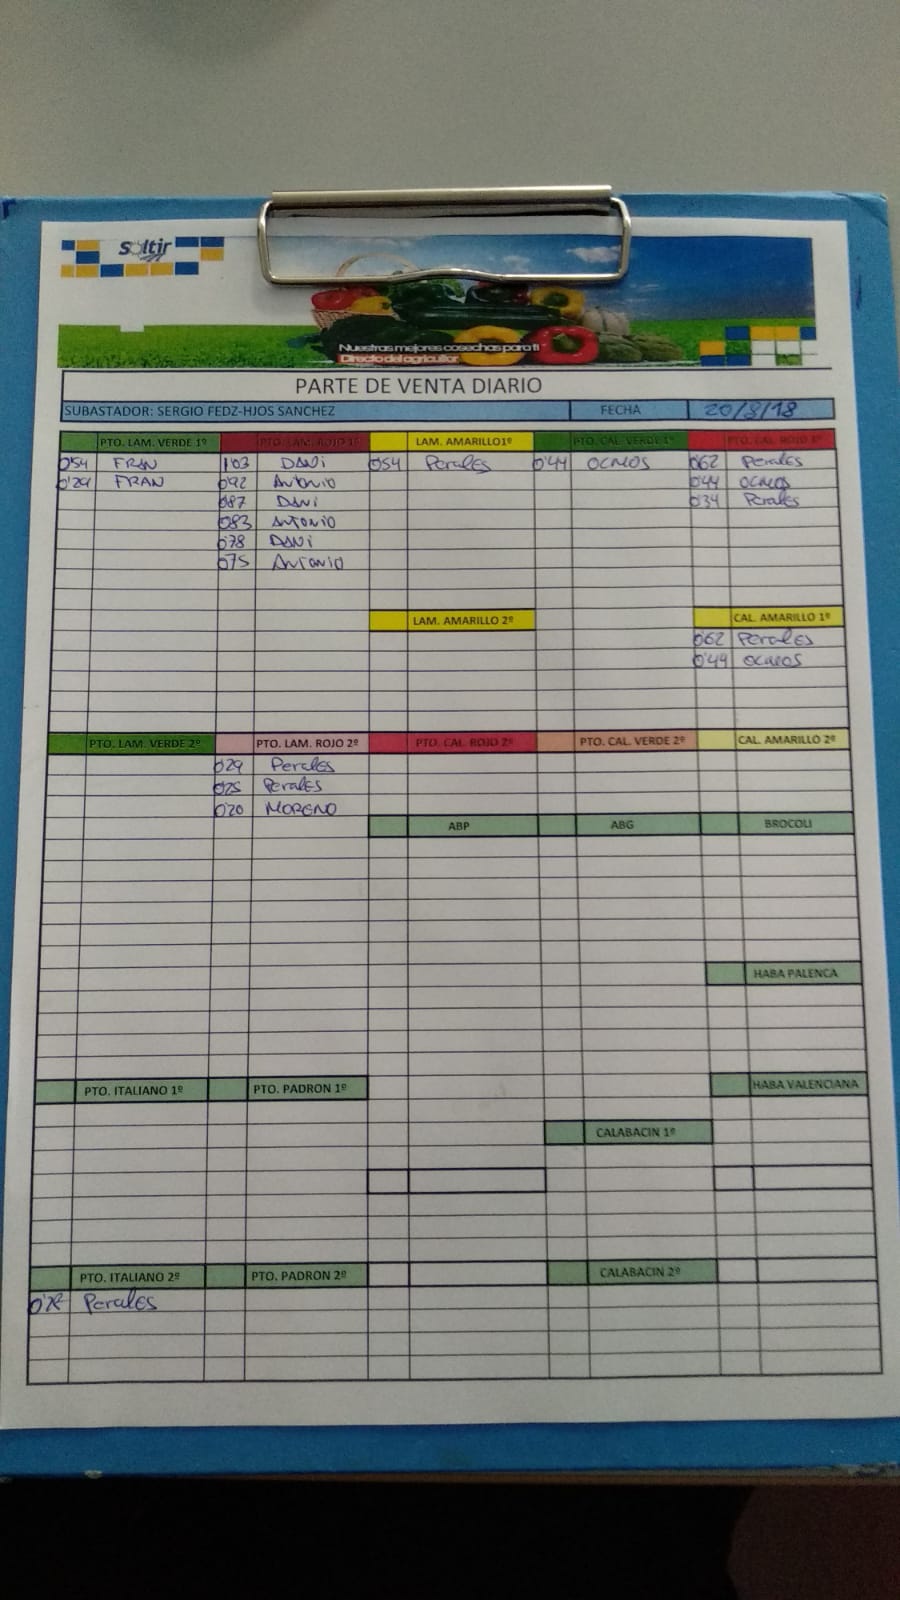 soltir
Nuestras mejores cosechas para ti
Directo del agricultor
PARTE DE VENTA DIARIO
SUBASTADOR: SERGIO FEDZ-HJOS SANCHEZ FECHA 20/8/18
PTO. LAM. VERDE 1º PTO. LAM. ROJO 1º LAM. AMARILLO1º PTO. CAL. VERDE 1º PTO. CAL. ROJO 1º
0'54 FRAN 1'03 DANI 0'54 Perales 0'44 OCAÑOS 0'62 Perales
0'29 FRAN 0'92 Antonio 0'44 OCAÑOS
0'87 DANI 0'34 Perales
0'83 ANTONIO
0'78 DANI
0'75 ANTONIO
LAM. AMARILLO 2º CAL. AMARILLO 1º
0'62 Perales
0'44 OCAÑOS
PTO. LAM. VERDE 2º PTO. LAM. ROJO 2º PTO. CAL. ROJO 2º PTO. CAL. VERDE 2º CAL. AMARILLO 2º
0'29 Perales
0'25 Perales
0'20 MORENO
ABP ABG BROCOLI
HABA PALENCA
PTO. ITALIANO 1º PTO. PADRON 1º HABA VALENCIANA
CALABACIN 1º
PTO. ITALIANO 2º PTO. PADRON 2º CALABACIN 2º
Perales